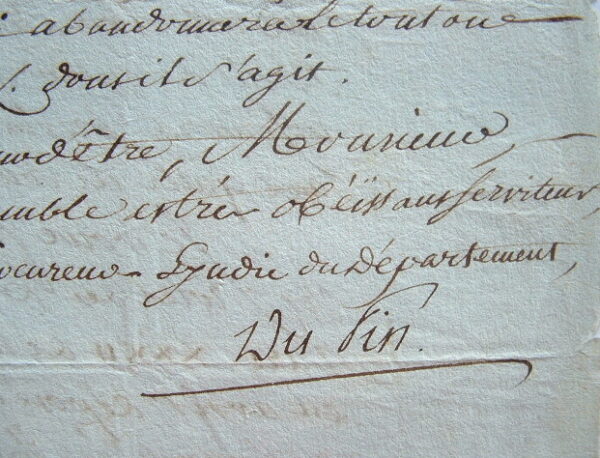 abandonnera le tout ou
dont il s'agit.
d'être, Monsieur,
umble et très obéissant serviteur,
ocureur-Syndic du Département,
Du Pin.